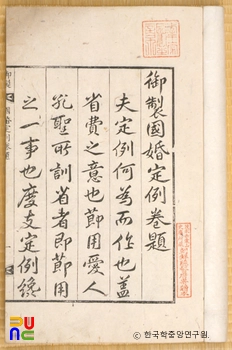 御製國婚定例卷題
夫定例何為而作也蓋
省費之意也節用愛人
孔聖所訓省者即節用
之一事也度支定例終
PUNC
ⓒ 한국학중앙연구원